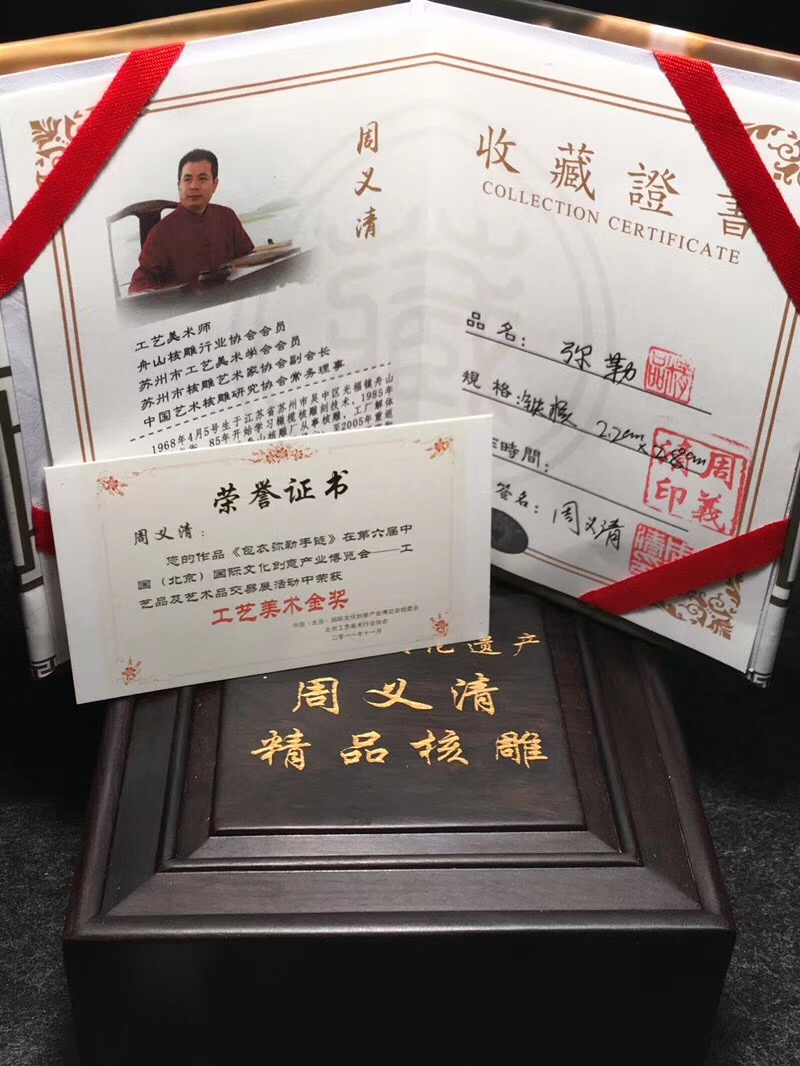 周义清
工艺美术师
舟山核雕行业协会会员
苏州市工艺美术学会会员
苏州市核雕艺术家协会副会长
中国艺术核雕研究协会常务理事
1968年4月5号生于江苏省苏州市吴中区光福镇舟山
85年开始学习橄榄核雕刻技术，1985年
舟山核雕厂从事核雕，工厂解体
至2005年重返
收藏證書
COLLECTION CERTIFICATE
品名：弥勒
規格：铁核 2.2cm×2.8cm
時間：
签名：周义清
周義清印
荣誉证书
周义清：
您的作品《包衣弥勒手链》在第六届中
国（北京）国际文化创意产业博览会——工
艺品及艺术品交易展活动中荣获
工艺美术金奖
中国（北京）国际文化创意产业博览会组委会
北京工艺美术行业协会
二零一一年十一月
化遗产
周义清
精品核雕